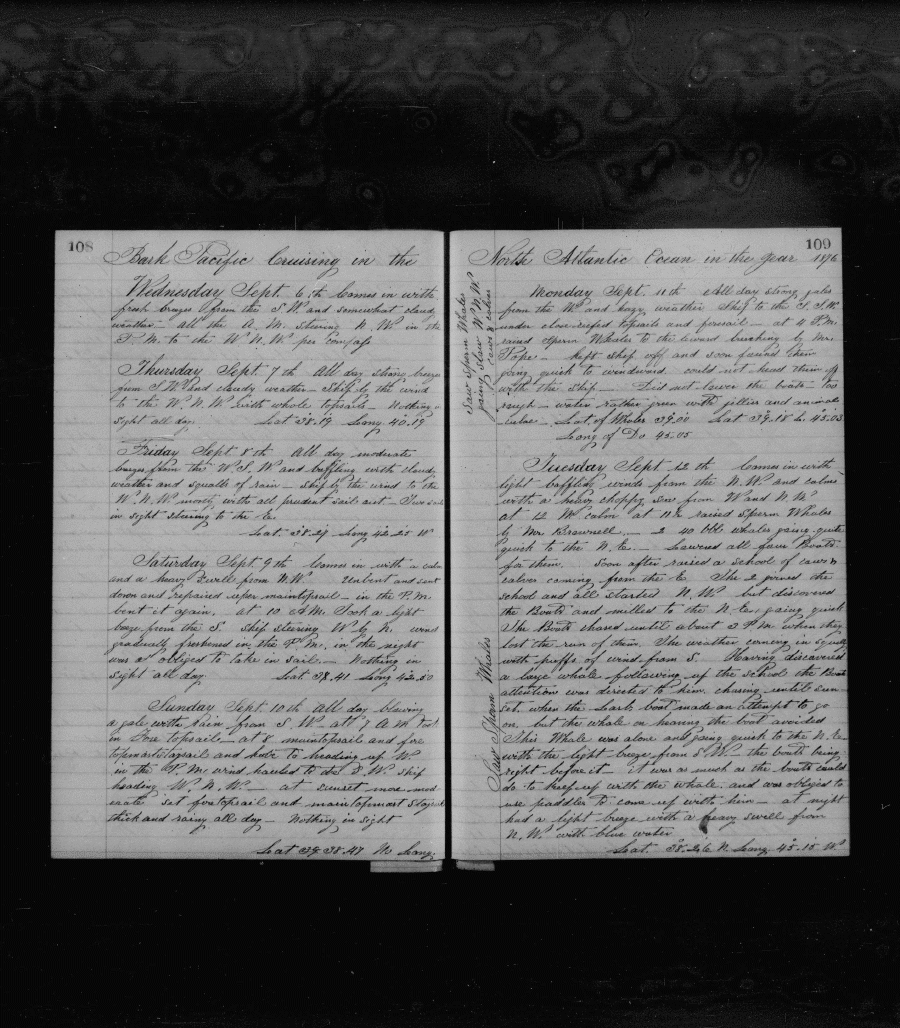 108
Bark Pacific Cruising in the
Wednesday Sept. 6th Comes in with
fresh breeze from the S.W. and somewhat cloudy
weather - all the A.M. steering N.W. in the
P.M. to the W.N.W. per compass
Thursday Sept 7th All day strong breeze
from S.W. and cloudy weather - Ship by the wind
to the W.N.W. with whole topsails - Nothing in
sight all day. Lat 38.19 Long 40.19
Friday Sept 8th All day moderate
breeze from the W.S.W. and baffling with cloudy
weather and squalls of rain - ship by the wind to the
W.N.W. mostly with all prudent sail out - Two sails
in sight steering to the E.
Lat. 38.29 Long 42.25 W
Saturday Sept 9th Comes in with a calm
and a heavy swell from N.W. Unbent and sent
down and repaired uper maintopsail - in the P.M.
bent it again. at 10 A.M. Took a light
breeze from the S. ship steering W by N. wind
gradually freshened in the P.M. in the night
was obliged to take in sail. - Nothing in
sight all day. Lat 38.41 Long 42.50
Sunday Sept 10th All day blowing
a gale with rain from S.W. at 7 A.M. took
in fore topsails - at 8 maintopsail and fore
topmast staysail and hove to heading up W.
in the P.M. wind hauled to the S.W. ship
heading W.N.W. - at sunset more mod
erate set foretopsail and maintopmast staysail
thick and rainy all day - Nothing in sight
Lat 38.47 N Long.
109
North Atlantic Ocean in the year 1876
Saw Sperm Whales
going slow W.N.W.
Monday Sept. 11th All day strong gales
from the W. and hazy weather Ship to the S.S.W.
under close reefed topsails and foresail - at 4 P.M.
raised Sperm Whales to the leward breaching by Mr.
Pope - kept ship off and soon found them
going quick to windward could not head them off
with the ship - Did not lower the boats - too
rough - water rather green with jellies and animal
culae - Lat. of Whales 39.00 Lat 39.18 L. 45.03
Long of Do 45.05
Saw Sperm Whales
Tuesday Sept 12th Comes in with
light baffling winds from the N.W. and calms
with a heavy choppy sea from W and N.W.
at 12 M. calm at 11 h raised Sperm Whales
by Mr. Brownell - 2 40 bbl whales going quite
quick to the N.E. - Lowered all four Boats
for them. Soon after raised a school of cows &
calves coming from the E The 2 joined the
school and all started N.W. but discovered
the Boats and milled to the N.E. going quick
The Boats chased until about 2 P.M. when they
lost the run of them. The weather coming in squally
with puffs of wind from S. Having discovered
a large whale following up the school the Boats
attention was directed to him. chasing until sun-
set. when the Larb boat made an attempt to go
on. but the whale on hearing the boat avoided
This Whale was alone and going quick to the N.E.
with the light breeze from S.W. the boats being
right before it - it was as much as the boats could
do to keep up with the whale. and was obliged to
use paddles to come up with him - at night
had a light breeze with a heavy swell from
N.W. with blue water
Lat. 38.26 N. Long. 45.15 W